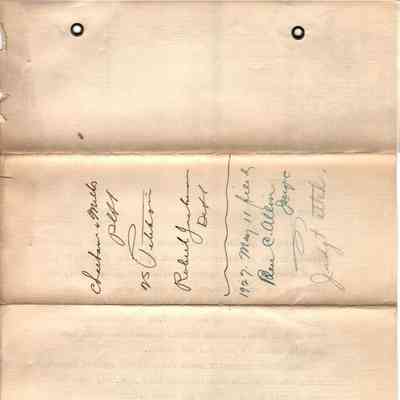 Cheeham & Mills
Plft
vs Petition
Robert Jackson
Deft
1927 May 11 filed
Ben C. Allen
Judge
Judgt